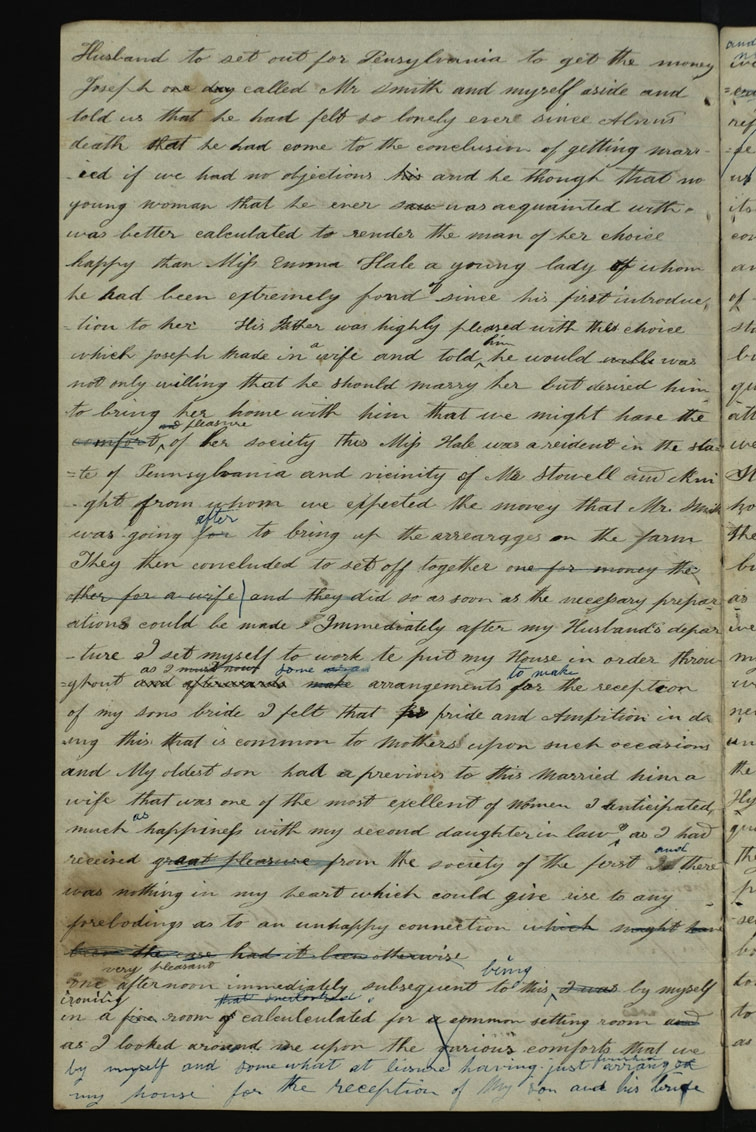 Husband to set out for Pensylvania to get the money
Joseph one day called Mr Smith and myself aside and
told us that he had felt so lonely evere since Alvins
death that he had come to the conclusion of getting marr-
-ied if we had no objections his and he though that no
young woman that he ever saw was acquainted with
was better calculated to render the man of her choice
happy than Miss Emma Hale a young lady of whom
he had been extremely fond of since his first introduc
-tion to her His Father was highly pleased with the choice
him
which Joseph made in a wife and told he would was
not only willing that he should marry her but desired him
to bring her home with him that we might have the
and pleasure
comfort of her society this Miss Hale was a reident in the sta-
-te of Pennsylvania and vicinity of Mr Stowell and Kni
-ght from whom we expected the money that Mr. Smith
after
was going for to bring up the arrearages on the farm
They then concluded to set off together one for money the
other for a wife and they did so as soon as the necessary prepar
ations could be made Immediately after my Husband's depar
-ture I set myself to work to put my House in order throu
as I must now some to make
-ghout and afterwards make arrangements for the reception
of my sons bride I felt that pride and Ambition in do
-ing this that is common to Mothers upon such occasions
and My oldest son had a previous to this Married him a
wife that was one of the most exellent of Women I anticipated
as
much happiness with my second daughter in law as I had
and
received great pleasure from the society of the first there
was nothing in my heart which could give rise to any
forebodings as to an unhappy connection which might have
been the case had it been otherwise
very pleasant being
one afternoon immediately subsequent to this I was by myself
ironing
in a room of calculculated for a common setting room and
as I looked around me upon the various comforts that we
by myself and somewhat at liesure having just arrang
my house for the reception of My son and his bride